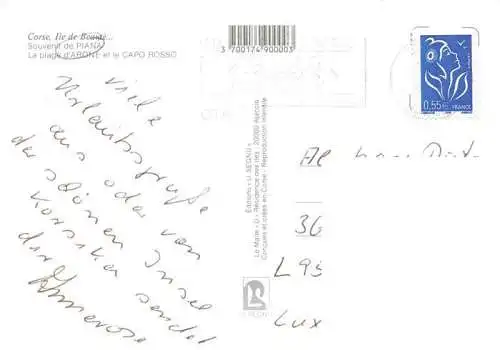 Corse, Ile de Beauté...
Souvenir de PIANA
La plage d'ARONE et le CAPO ROSSO
3 700174 900003
0,55€ FRANCE
viele
Urlaubsgrüße
aus oder von
der schönen Insel
Korsika sendet
dir
Editions "U SEGNU"
Le Maine - D - Résidence des Iles - 20000 Ajaccio
Conçues et créées en Corse - Reproduction interdite
36
L 95
Lux